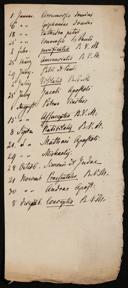 1 Januar. Circumcisio Domini
6 " Epiphania Domini
18 " Cathedra Petri
25 " Conversio S. Pauli
2 Febr. Purificatio B.V.M.
25 Mart. Annunciatio B.V.M.
29 Juny. Petri et Pauli
2 July Visitatio B.V.M.
25 July Jacobi Apostoli
1 August Petri Vincula
15 " Assumptio B.V.M.
8 Septem Nativitatis B.V.M.
21 " Matthaei Apostoli
29 " Michaelis
28 Octob. Simonis et Judae
21 Novemb Praesentatio B.V.M.
30 " Andreae Apost.
8 Decemb Conceptio B.V.M.